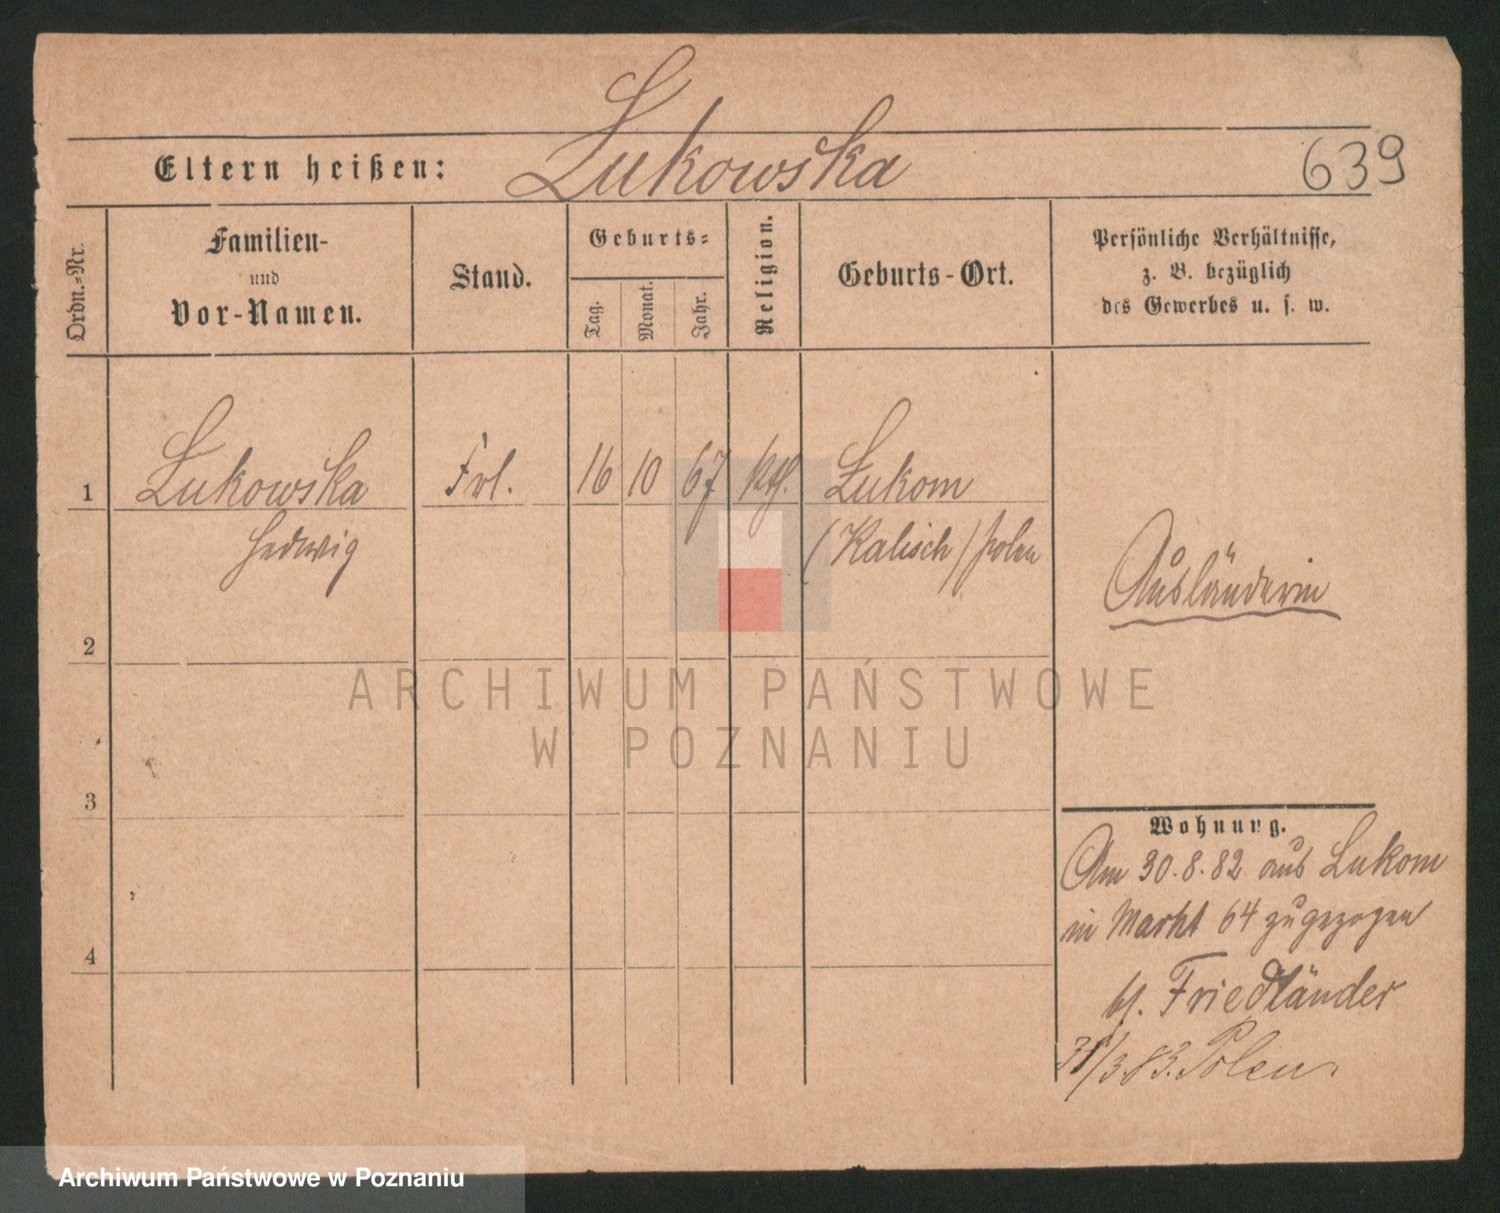 Lukowska
Eltern heißen:
639
Ordn.=Nr.
Familien-
und
Vor-Namen.
Stand.
Geburts=
Tag.
Monat.
Jahr.
Religion.
Geburts-Ort.
Persönliche Verhältnisse,
z. B. bezüglich
des Gewerbes u. s. w.
1
Lukowska
Hedwig
Frl.
16
10
67
kth.
Lukom
(Kalisch) Polen
Ausländerin
2
3
4
ARCHIWUM PAŃSTWOWE
W POZNANIU
Wohnung.
Am 30.8.82 aus Lukom
in Markt 64 zugezogen
Friedländer
31/3.83. Polen.
Archiwum Państwowe w Poznaniu